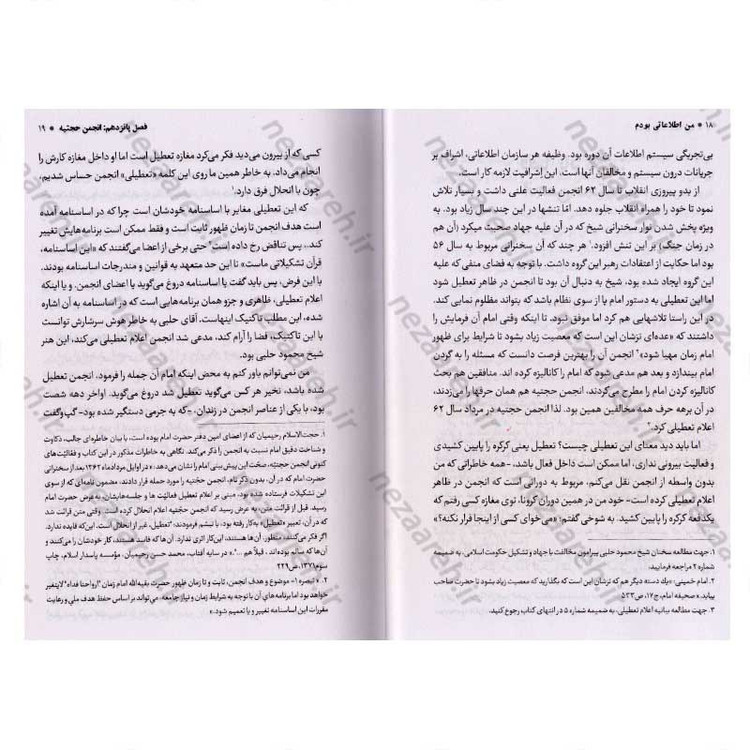 ۱۸ ● من اطلاعاتی بودم
بی‌تجربگی سیستم اطلاعات آن دوره بود. وظیفه هر سازمان اطلاعاتی، اشراف بر
جریانات درون سیستم و مخالفان آنها است. این اِشرافیت لازمه کار است.
از بدو پیروزی انقلاب تا سال ۶۲ انجمن فعالیت علنی داشت و بسیار تلاش
نمود تا خود را همراه انقلاب جلوه دهد. امّا تنشها در این چند سال زیاد بود. به
ویژه پخش شدن نوار سخنرانی شیخ که در آن علیه جهاد صحبت میکرد (آن هم
در زمان جنگ) بر این تنش افزود.۱ هر چند که آن سخنرانی مربوط به سال ۵۶
بود اما حکایت از اعتقادات رهبر این گروه داشت. با توجه به فضای منفی که علیه
این گروه ایجاد شده بود، شیخ به دنبال آن بود تا انجمن در ظاهر تعطیل شود
اما این تعطیلی به دستور امام یا از سوی نظام باشد که بتواند مظلوم نمایی کند.
در این راستا تلاشهایی هم کرد اما موفق نبود. تا اینکه وقتی امام آن فرمایش را
داشتند که «عده‌ای نزشان این است که معصیت زیاد بشود تا شرایط برای ظهور
امام زمان مهیا شود»۲ انجمن آن را بهترین فرصت دانست که مسئله را به گردن
امام بیندازد و بعد هم مدعی شود که امام را کانالیزه کرده اند. منافقین هم بحث
کانالیزه کردن امام را مطرح می‌کردند، انجمن حجتیه هم همان حرفها را می‌زدند،
در آن برهه حرف همه مخالفین همین بود. لذا انجمن حجتیه در مرداد سال ۶۲
اعلام تعطیلی کرد.۳
اما باید دید معنای این تعطیلی چیست؟ تعطیل یعنی کرکره را پایین کشیدی
و فعالیت بیرونی نداری، اما ممکن است داخل فعال باشد، -همه خاطراتی که من
بدون واسطه از انجمن نقل می‌کنم، مربوط به دورانی است که انجمن در ظاهر
اعلام تعطیلی کرده است- خود من در همین دوران کرونا، توی مغازه کسی رفتم که
یکدفعه کرکره را پایین کشید. به شوخی گفتم: «می‌خوای کسی از اینجا فرار نکنه؟»
۱. جهت مطالعه سخنان شیخ محمود حلبی پیرامون مخالفت با جهاد و تشکیل حکومت اسلامی، به ضمیمه
شماره ۲ مراجعه فرمایید.
۲. امام خمینی: «یك دسته دیگر هم که تزشان این است که بگذارید که معصیت زیاد بشود تا حضرت صاحب
بیاید.» صحیفه امام، ج۱۷، ص۵۳۳
۳. جهت مطالعه بیانیه اعلام تعطیلی، به ضمیمه شماره ۵ در انتهای کتاب رجوع کنید.
فصل پانزدهم: انجمن حجتیه ● ۱۹
کسی که از بیرون می‌دید فکر می‌کرد مغازه تعطیل است اما او داخل مغازه کارش را
انجام می‌داد. به خاطر همین ما روی این کلمه «تعطیلی» انجمن حساس شدیم،
چون با انحلال فرق دارد.۱
که این تعطیلی مغایر با اساسنامه خودشان است چرا که در اساسنامه آمده
است هدف انجمن تا زمان ظهور ثابت است و فقط ممکن است برنامه‌هایش تغییر
کند.۲ پس تناقض رخ داده است؟ حتی برخی از اعضا می‌گفتند که «این اساسنامه،
قرآن تشکیلاتی ماست» تا این حد متعهد به قوانین و مندرجات اساسنامه بودند.
با این فرض، پس باید گفت یا اساسنامه دروغ می‌گوید یا اعضای انجمن. و یا اینکه
اعلام تعطیلی، ظاهری و جزو همان برنامه‌هایی است که در اساسنامه به آن اشاره
شده، این مطلب تاکتیک اینهاست. آقای حلبی به خاطر هوش سرشارش توانست
با این تاکتیک، فضا را آرام کند. مدعی شد انجمن تعطیلی می‌کند، این هنر
شیخ محمود حلبی بود.
من نمی‌توانم باور کنم به محض اینکه امام آن جمله را فرمود، انجمن تعطیل
شده باشد، نخیر هر کس می‌گوید تعطیل شد دروغ می‌گوید. اواخر دهه شصت
بود، با یکی از عناصر انجمن در زندان، -که به جرمی دستگیر شده بود- گپ‌وگفت
۱. حجت‌الاسلام رحیمیان که از اعضای امین دفتر حضرت امام بوده است، با بیان خاطره‌ای جالب، ذکاوت
و شناخت دقیق امام نسبت به انجمن را ذکر می‌کند. نگاهی به خاطرات مذکور در این کتاب و فعّالیّت‌های
کنونی انجمن حجتیه، صحّت این پیش بینی امام را نشان می‌دهد: «در اوایل مردادماه ۱۳۶۲ بعد از سخنرانی
حضرت امام که در آن، بدون ذکر نام، انجمن حجتیه را مورد حمله قرار دادند، مضمون نامه‌ای که از سوی
این تشکیلات فرستاده شده بود، مبنی بر اعلام تعطیل فعالیّت ها و جلسه‌هایشان، به عرض حضرت امام
رسید. قبل از قرائت متن، به عرض رسید که انجمن حجتیه اعلام انحلال کرده است. وقتی متن قرائت شد
که در آن، تعبیر «تعطیل» به‌کار رفته بود، با تبسّم فرمودند: "تعطیل، غیر از انحلال است. این که فایده ندارد.
اگر فکر می‌کنند، منظور، آن‌ها هستند، این‌کار اثری ندارد. آن‌ها که فایده ندارند، کار خودشان را می‌کنند و
آن‌ها که سالم بوده‌اند، قبلاً هم ...".» در سایه آفتاب، محمد حسن رحیمیان، مؤسسه پاسدار اسلام، چاپ
سوم۱۳۷۱، ص۲۲۹
۲. « تبصره ۱- موضوع و هدف انجمن، ثابت و تا زمان ظهور حضرت بقیه‌الله امام زمان "ارواحنا فداه" لایتغیر
خواهد بود اما برنامه‌های آن با توجه به شرایط زمان و نیاز جامعه، می‌تواند بر اساس حفظ هدف ملی و رعایت
مقررات این اساسنامه تغییر و یا تعمیم شود.»
nezaareh.ir